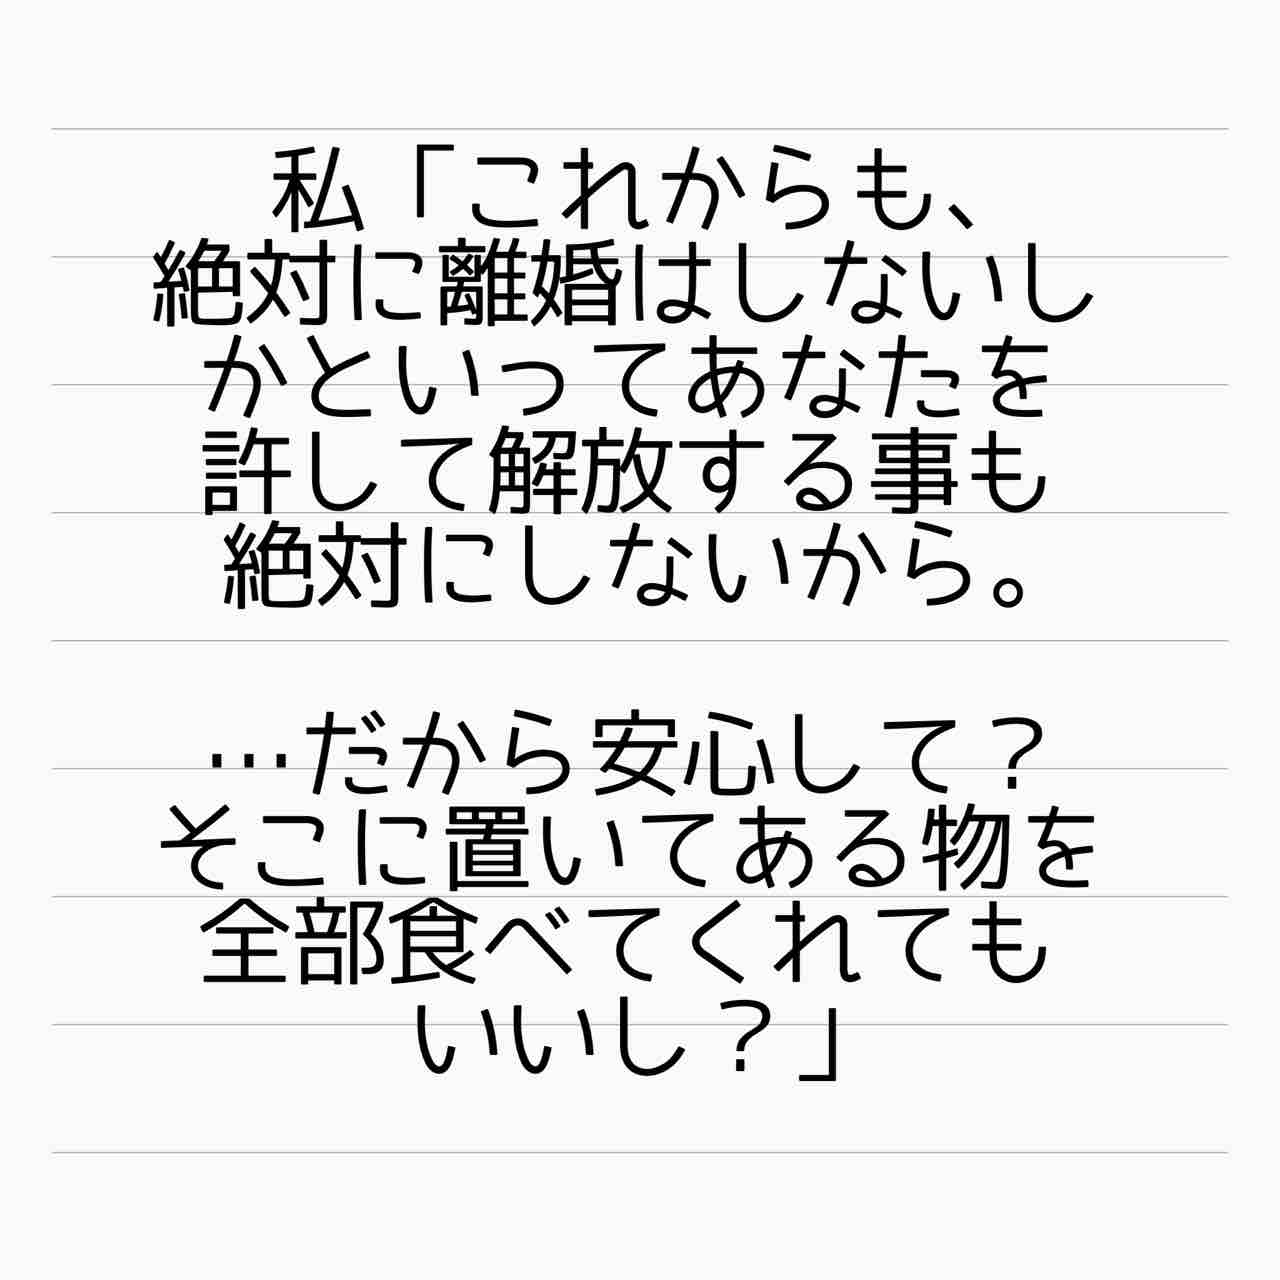 私「これからも、
絶対に離婚はしないし
かといってあなたを
許して解放する事も
絶対にしないから。
…だから安心して？
そこに置いてある物を
全部食べてくれても
いいし？」